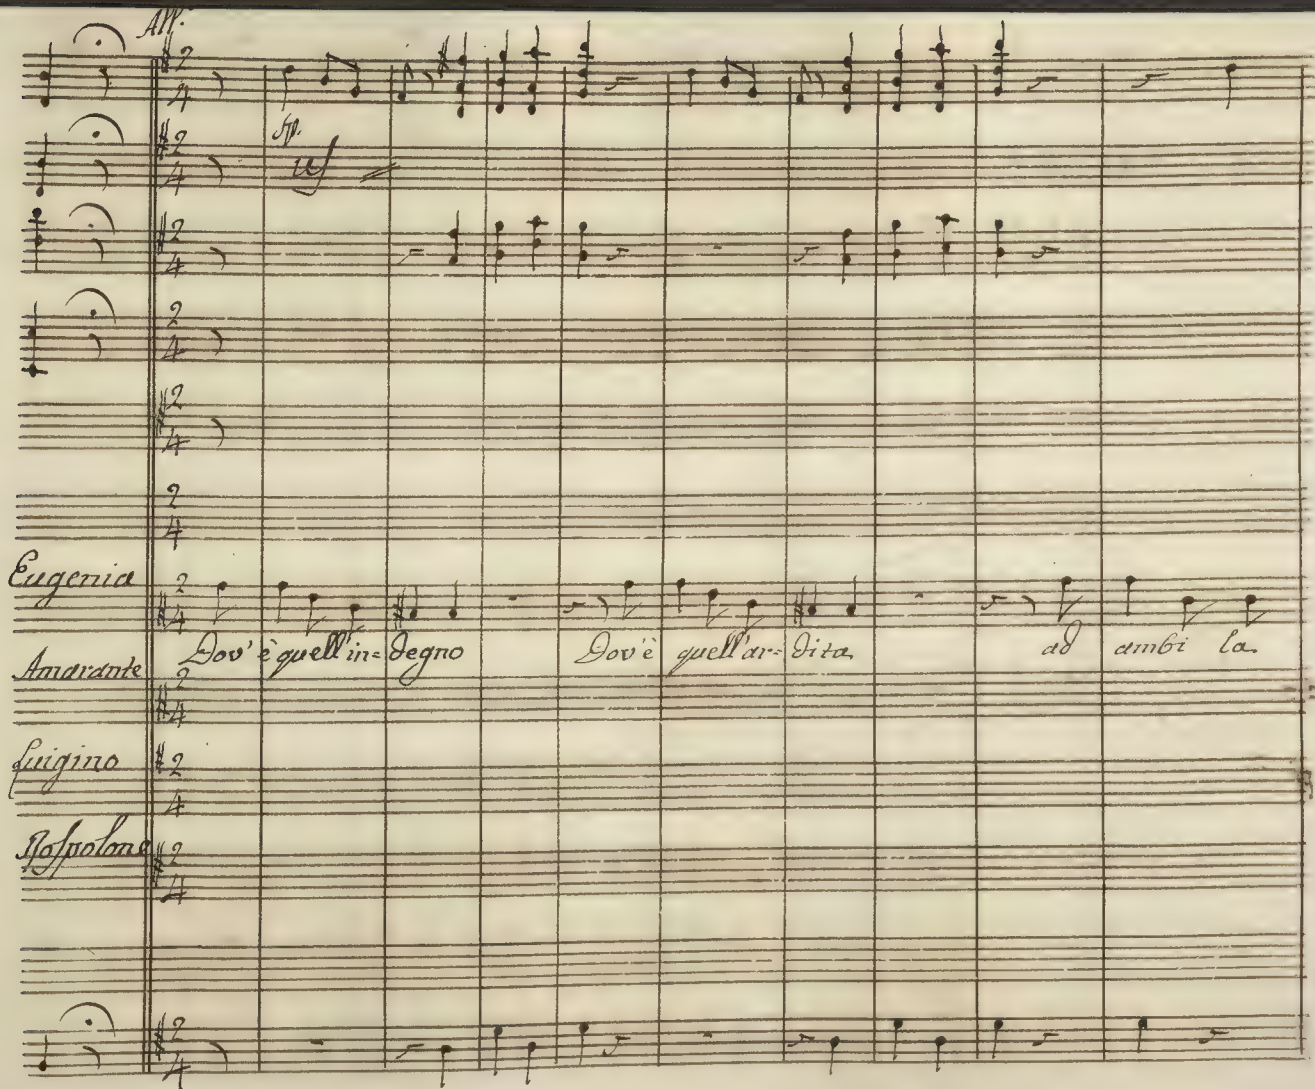 All:
2 4
fp.
uſ
Eugenia
Dov' è quell'in= degno Dov'è quell'ar= dita ad ambi la
Amarante
Luigino
Roſpolone